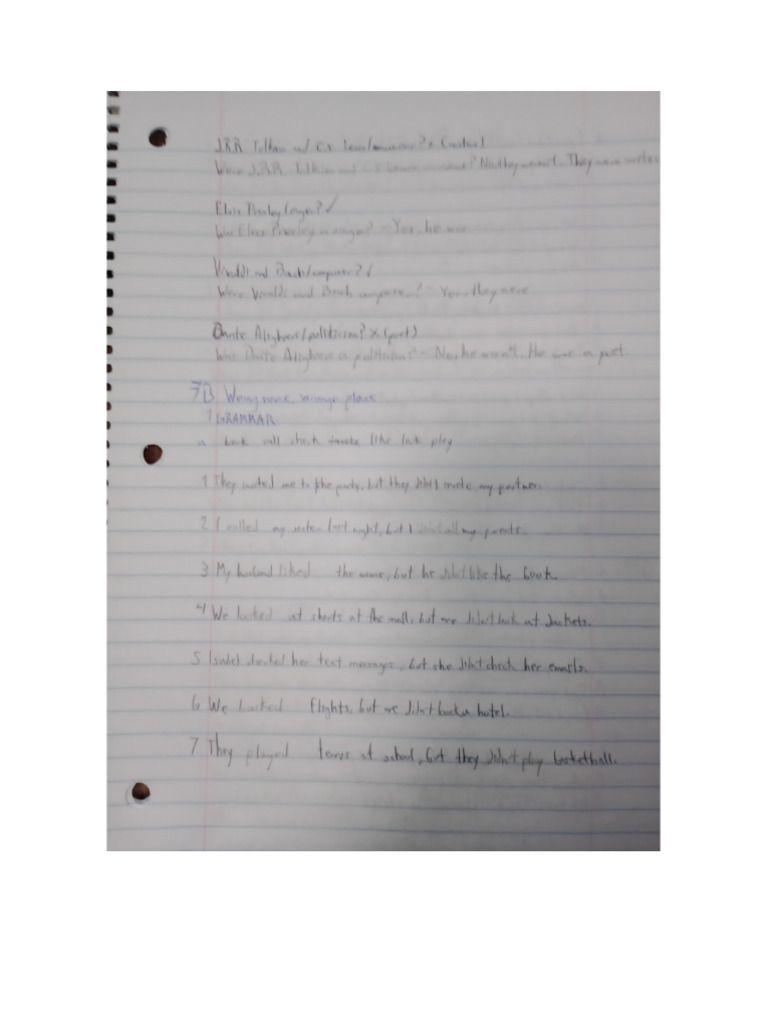 JRR Tolkien and C.S Lewis/musicians? x (writers)
Were J.R.R. Tolkien and musicians? No, they weren't. They were writers
Elvis Presley/singer? ✓
Was Elvis Presley a singer? - Yes, he was
Vivaldi and Bach/composers? ✓
Were Vivaldi and Bach composers? - Yes, they were
Dante Alighieri/politician? x (poet)
Was Dante Alighieri a politician? - No, he wasn't. He was a poet
7B Wrong name, wrong place
1 GRAMMAR
a book call check invite like look play
1 They invited me to the party, but they didn't invite my partner.
2 I called my sister last night, but I didn't call my parents.
3 My husband liked the movie, but he didn't like the book.
4 We looked at shirts at the mall, but we didn't look at jackets.
5 Isabel checked her text messages, but she didn't check her emails.
6 We booked flights, but we didn't book a hotel.
7 They played tennis at school, but they didn't play basketball.